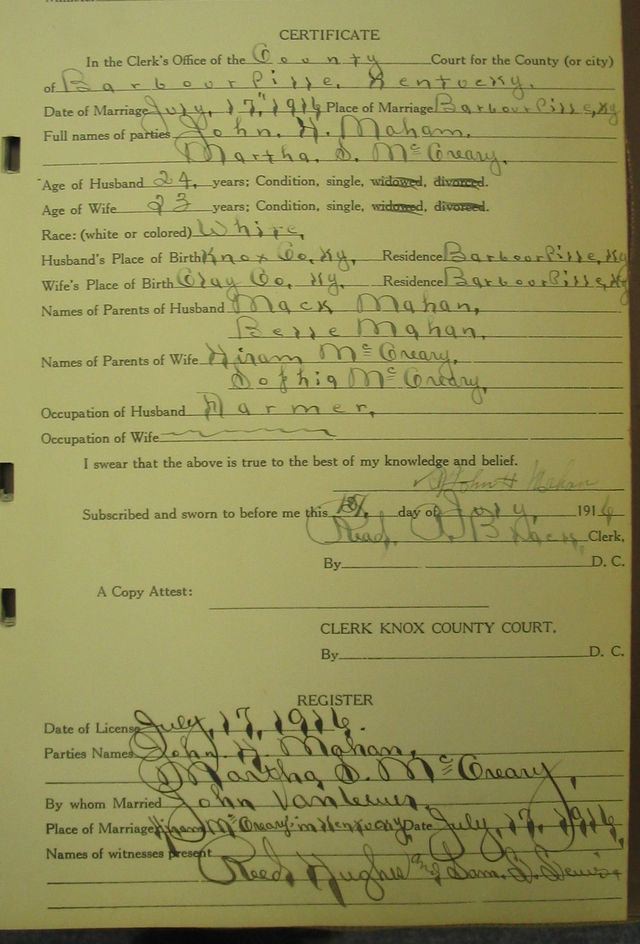 CERTIFICATE
In the Clerk's Office of the County Court for the County (or city)
of Barbourville, Kentucky.
Date of Marriage July, 17, 1916 Place of Marriage Barbourville, Ky
Full names of parties John. H. Maham,
Martha. S. McCreary,
Age of Husband 24, years; Condition, single, widowed, divorced.
Age of Wife 23 years; Condition, single, widowed, divorced.
Race: (white or colored) White,
Husband's Place of Birth Knox Co, Ky, Residence Barbourville, Ky
Wife's Place of Birth Clay Co, Ky, Residence Barbourville, Ky
Names of Parents of Husband Mack Mahan,
Mahan,
Names of Parents of Wife Hiram McCreary,
Sophia McCreary,
Occupation of Husband Farmer,
Occupation of Wife
I swear that the above is true to the best of my knowledge and belief.
John H Mahan
Subscribed and sworn to before me this day of July, 1916
Read, Black Clerk,
By D. C.
A Copy Attest:
CLERK KNOX COUNTY COURT.
By D. C.
REGISTER
Date of License July, 17, 1916.
Parties Names John. H. Mahan,
Martha S. McCreary,
By whom Married John
Place of Marriage Hiram McCreary, in Kentucky Date July, 17, 1916
Names of witnesses present
Reed, Hughes and Sam. Lewis